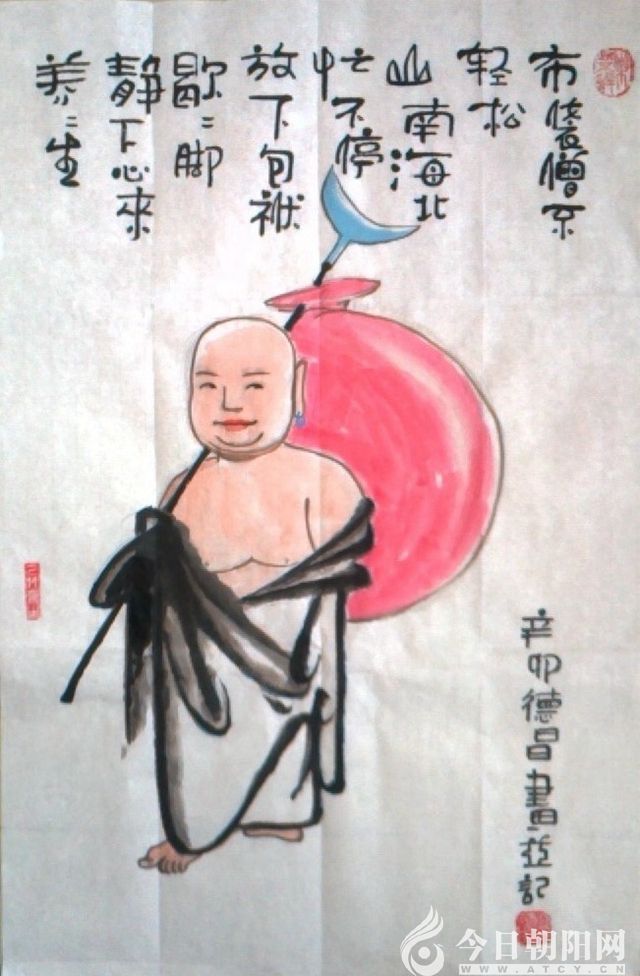 布袋僧不
轻松
山南海北
忙不停
放下包袱
歇:脚
静下心來
养:生
辛卯德昌書並記
今日朝阳网
WWW.ATCY.CN